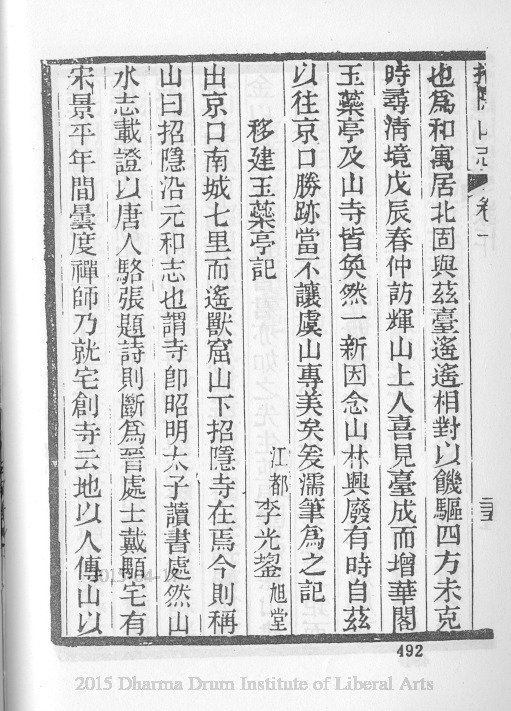 招隱山志 卷十
也爲和寓居北固與茲臺遙遙相對以饑驅四方未克
時尋淸境戊辰春仲訪輝山上人喜見臺成而增華閣
玉蘂亭及山寺皆奐然一新因念山林興廢有時自茲
以往京口勝跡當不讓虞山專美矣爰濡筆爲之記
移建玉蘂亭記
江都 李光鋆 旭堂
出京口南城七里而遙獸窟山下招隱寺在焉今則稱
山曰招隱沿元和志也謂寺卽昭明太子讀書處然山
水志載證以唐人駱張題詩則斷爲晉處士戴顒宅有
宋景平年間曇度禪師乃就宅創寺云地以人傳山以
492
2015 Dharma Drum Institute of Liberal Arts